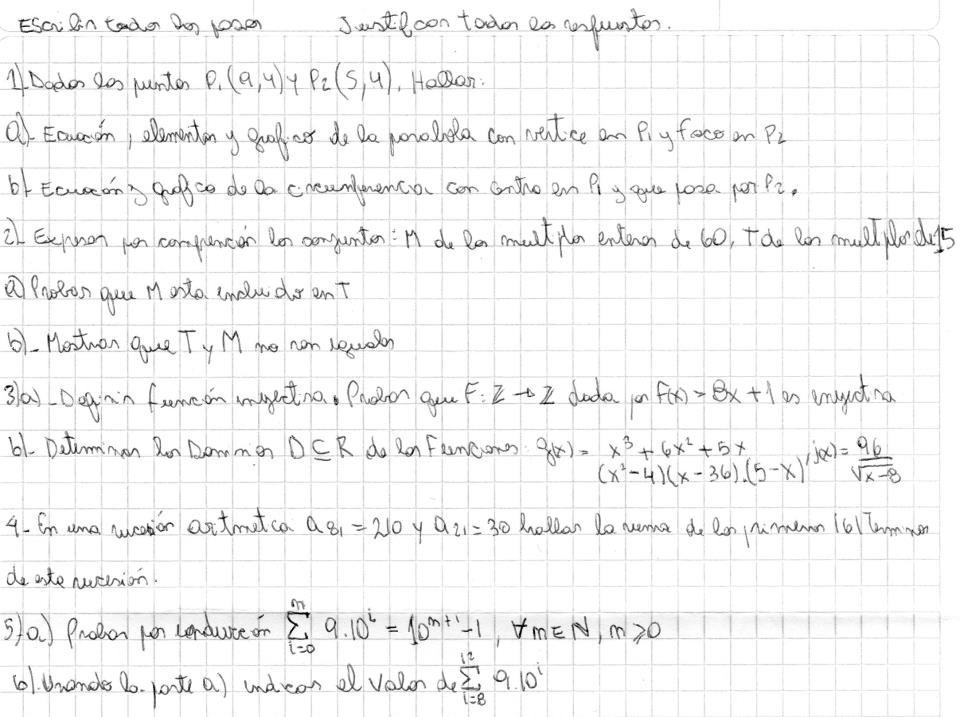 Escribir todos los pasos Justifican todas las respuestas.
1) Dados los puntos P₁(9,4) y P₂(5,4), Hallar:
a) - Ecuación, elementos y gráfico de la parábola con vértice en P₁ y foco en P₂
b) - Ecuación y gráfico de la circunferencia con centro en P₁ y que pasa por P₂.
2) - Expresar por comprensión los conjuntos: M de los multiplos enteros de 60, T de los multiplos de 15
a) Probar que M esta incluido en T
b) - Mostrar que T y M no son iguales
3) a) - Definir función inyectiva. Probar que F: ℤ → ℤ dada por f(x) = 8x + 1 es inyectiva
b) - Determinar los Dominios D ⊆ R de las Funciones: g(x) = (x³ + 6x² + 5x) / ((x² - 4)(x - 36).(5 - x)), j(x) = 96 / √(x - 8)
4 - En una sucesión aritmetica a₈₁ = 210 y a₂₁ = 30 hallar la suma de los primeros 161 Terminos
de esta sucesión.
5) a) Probar por inducción ∑_{i=0}^{n} 9.10^i = 10^{n+1} - 1, ∀ n ∈ N, n ≥ 0
b). Usando la parte a) indicar el valor de ∑_{i=8}^{12} 9.10^i